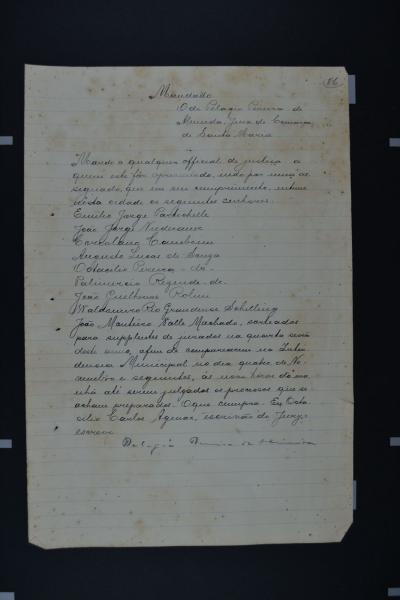 86
Mandado
O dr. Pelagio Pereira de
Almeida, Juiz de Comarca
de Santa Maria
Mando a qualquer official de justiça a
quem este fôr apresentado, indo por mim as
signado, que em seu cumprimento, intime
nesta cidade os seguintes senhores:
Emilio Jorge
João Jorge Niederauer
Augusto Lucas de Souza
Octacilio Pereira - dr.
Palmerio Rezende - dr.
João Guilherme Rolim
Waldomiro Rio Grandense Schilling
João Monteiro Valle Machado, sorteados
para supplentes de jurados na quarta sessão
deste anno, afim de comparecerem na Inten
dencia Municipal no dia quatro de No
vembro e seguintes, ás nove horas da ma
nhã até serem julgados os processos que se
acham preparados. O que cumpra. Eu, Octa
cilio Carlos Aguiar, escrivão do Jury,
escrevi.
Pelagio Pereira de Almeida